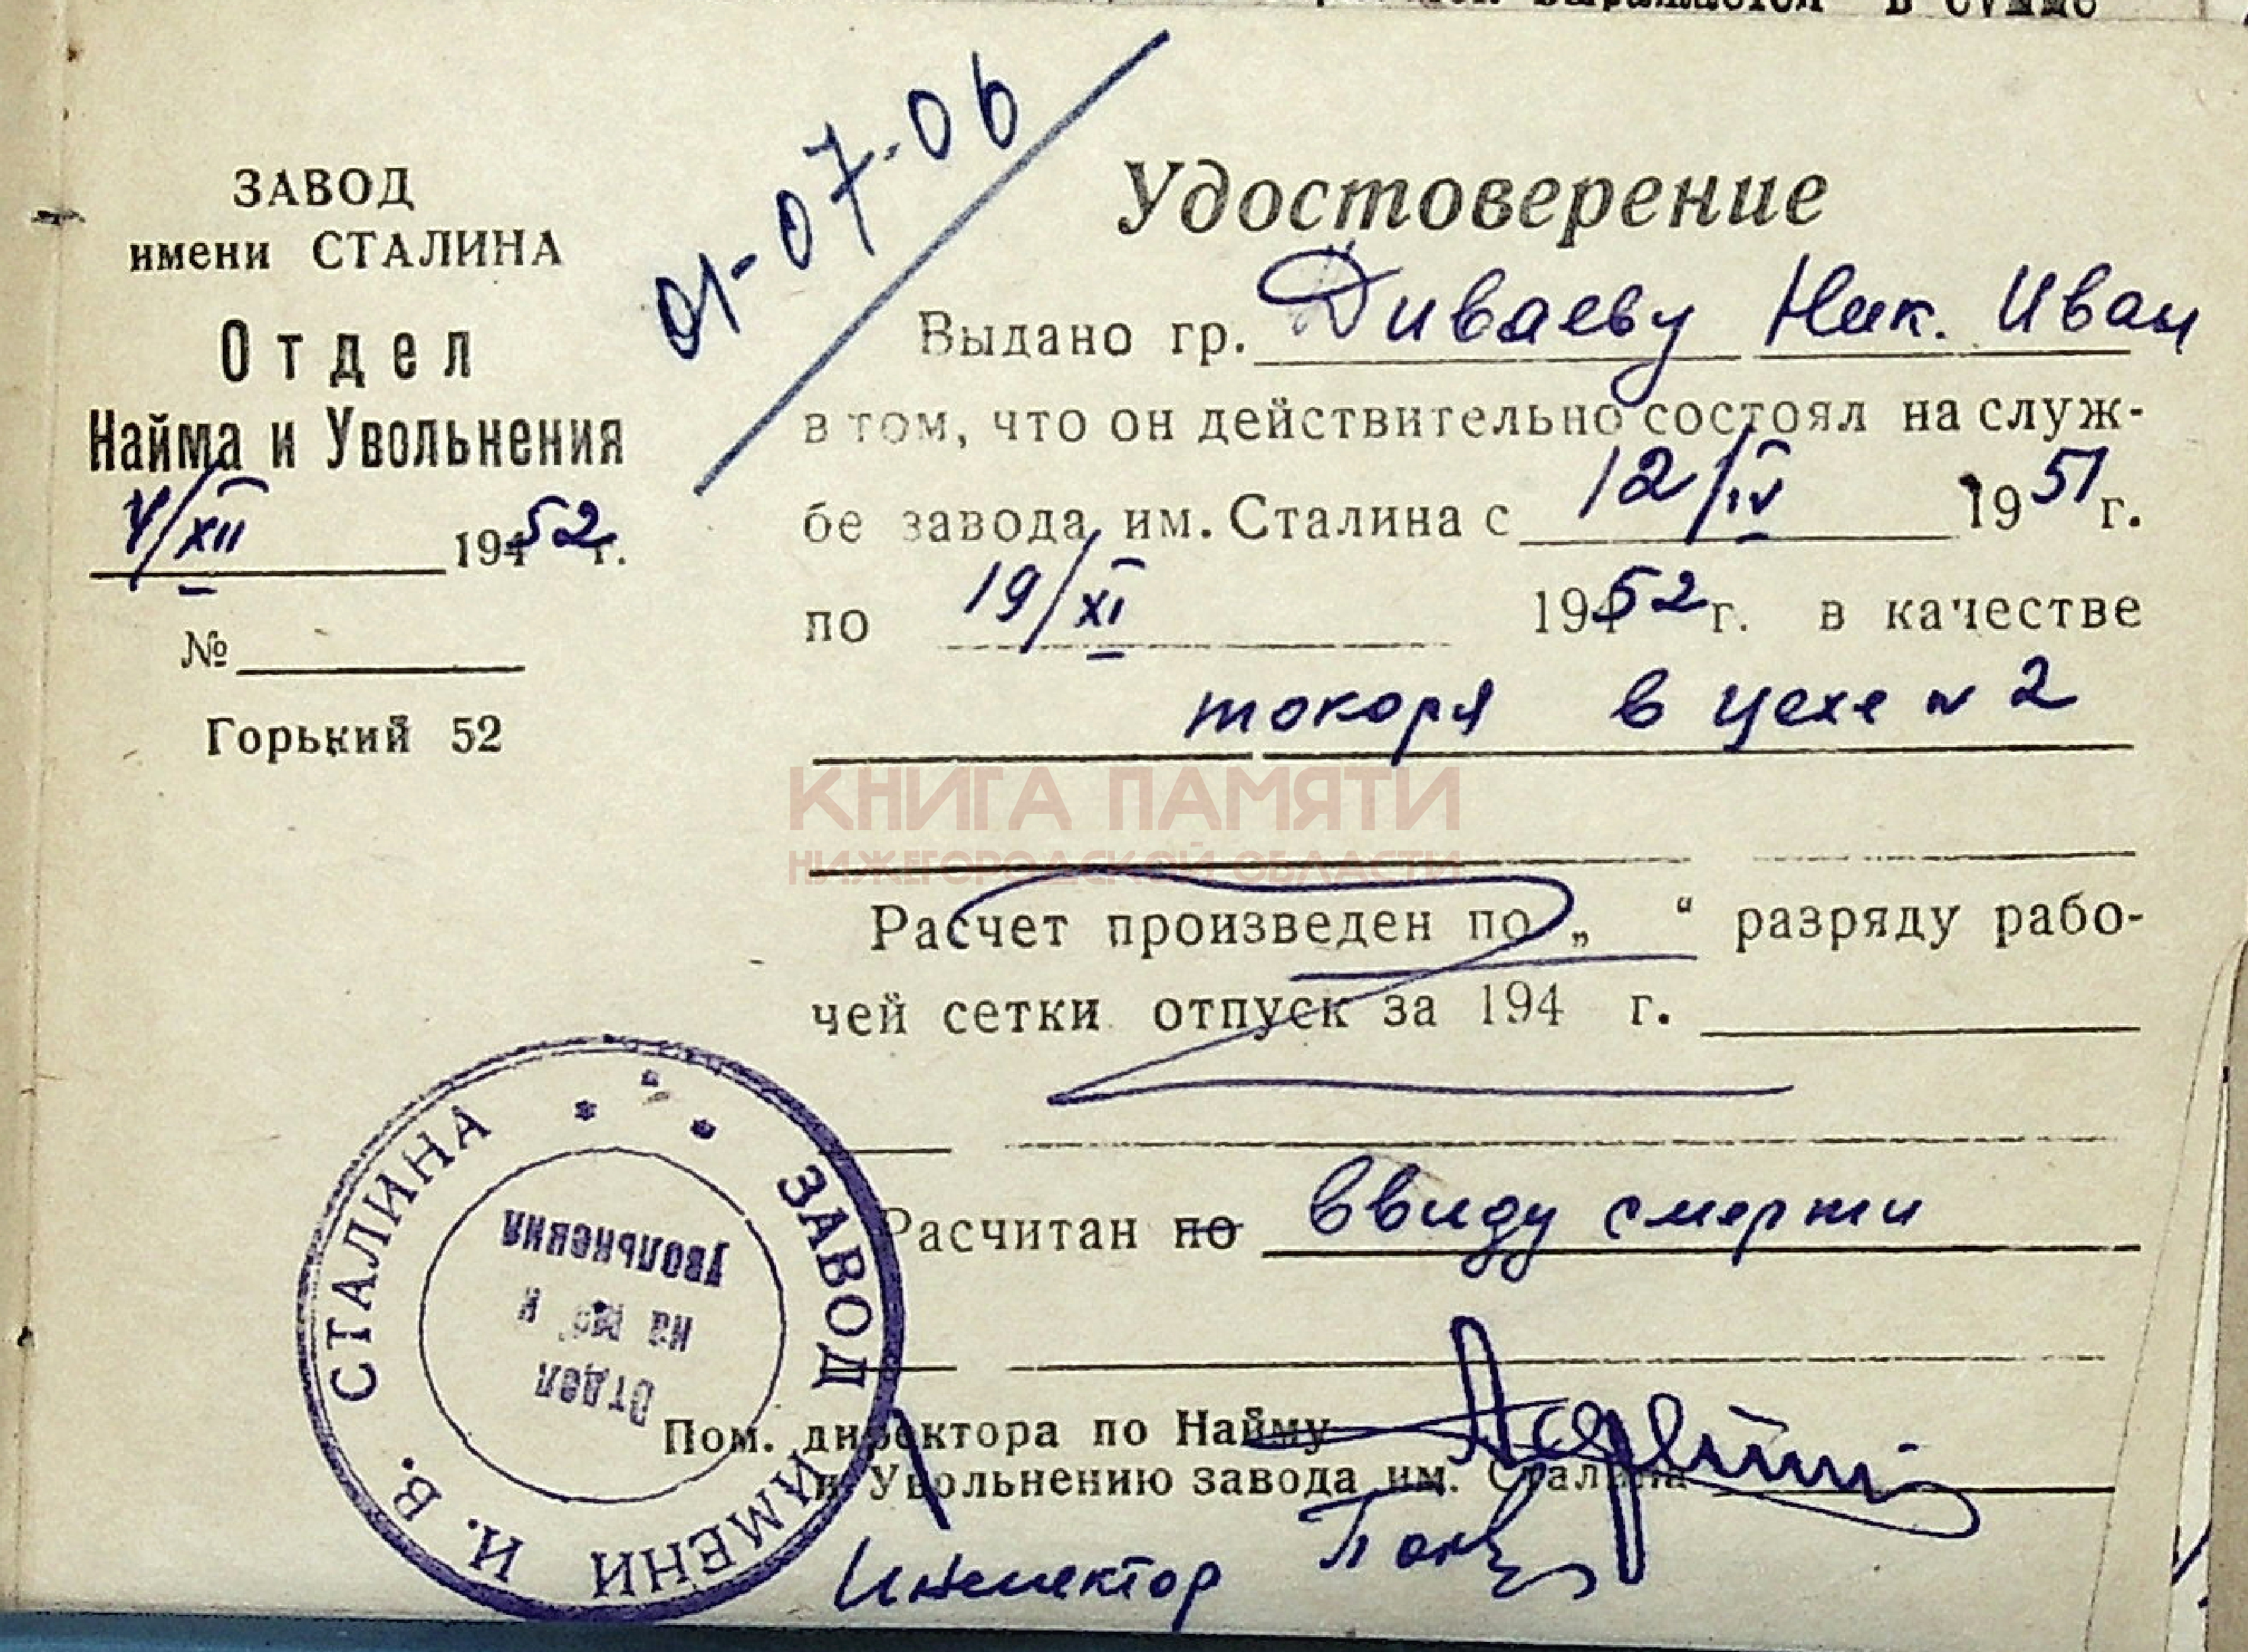 выражается в сумме
01-07-06
ЗАВОД
имени СТАЛИНА
Отдел
Найма и Увольнения
V/XII 1952 г.
№
Горький 52
Удостоверение
Выдано гр. Диваеву Ник. Иван
в том, что он действительно состоял на служ-
бе завода им. Сталина с 12/IV 1951 г.
по 19/XI 1952 г. в качестве
токоря в цехе N 2
КНИГА ПАМЯТИ
НИЖЕГОРОДСКОЙ ОБЛАСТИ
Расчет произведен по „ “ разряду рабо-
чей сетки отпуск за 194 г.
Расчитан по ввиду смерти
Пом. директора по Найму
и Увольнению завода им. Сталина
Инспектор
ЗАВОД ИМЕНИ И. В. СТАЛИНА
Отдел
увольнения